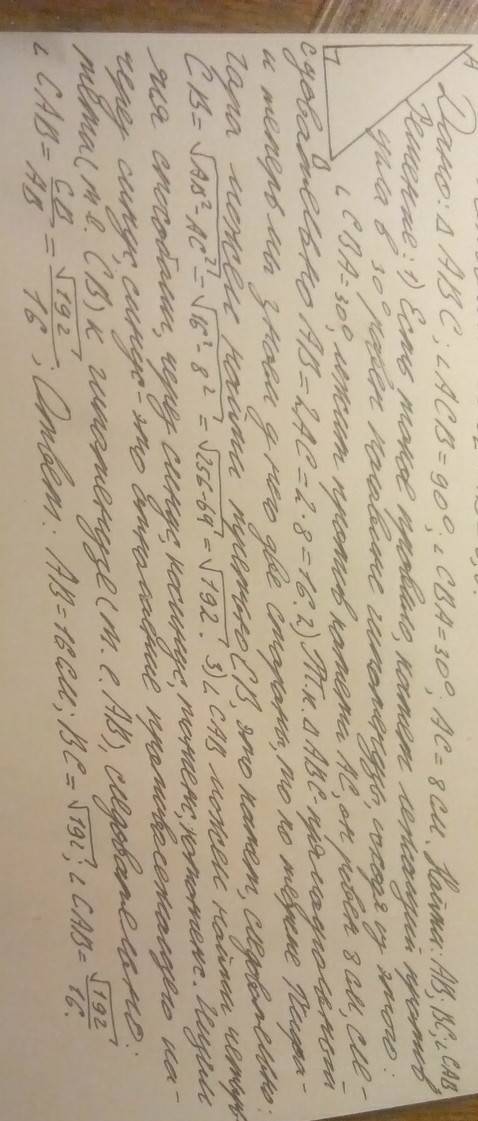 A
B
Дано: Δ ABC; ∠ACB = 90°; ∠CBA = 30°; AC = 8 см. Найти: AB; BC; ∠CAB
Решение: 1) Есть такое правило, катет лежащий против
угла в 30° равен половине гипотенузы, исходя из этого:
∠ CBA = 30°, лежит против катета AC, он равен 8 см, сле-
довательно AB = 2AC = 2·8 = 16. 2) Т.к. Δ ABC - прямоугольный
и теперь мы знаем у него две стороны, то по теореме Пифа-
гора можем найти третью CB, это катет, следовательно:
CB = √AB² - AC² = √16² - 8² = √256-64 = √192. 3) ∠ CAB можем найти четырь-
мя способами, через синус, косинус, тангенс, котангенс. Ищем
через синус, синус - это отношение противолежащего ка-
тета (т.е. CB) к гипотенузе (т.е. AB), следовательно:
∠ CAB = CB/AB = √192/16. Ответ: AB = 16 см; BC = √192; ∠ CAB = √192/16.